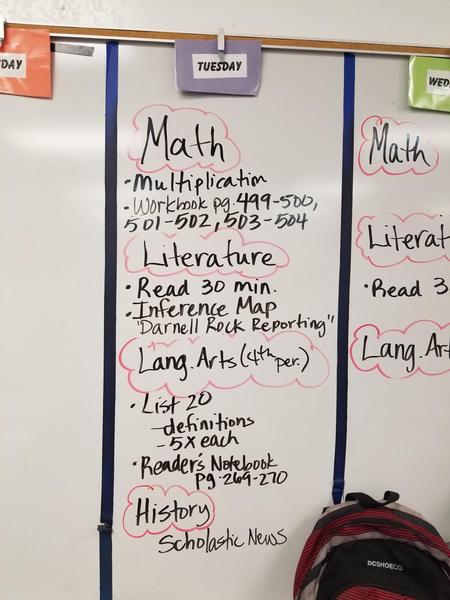 DAY
TUESDAY
WED
Math
• Multiplication
• Workbook pg. 499-500,
501-502, 503-504
Literature
• Read 30 min.
• Inference Map
"Darnell Rock Reporting"
Lang. Arts (4th per.)
• List 20
- definitions
- 5x each
• Reader's Notebook
pg. 269-270
History
Scholastic News
Math
Literat
• Read 3
Lang. Art
DCSHOECO